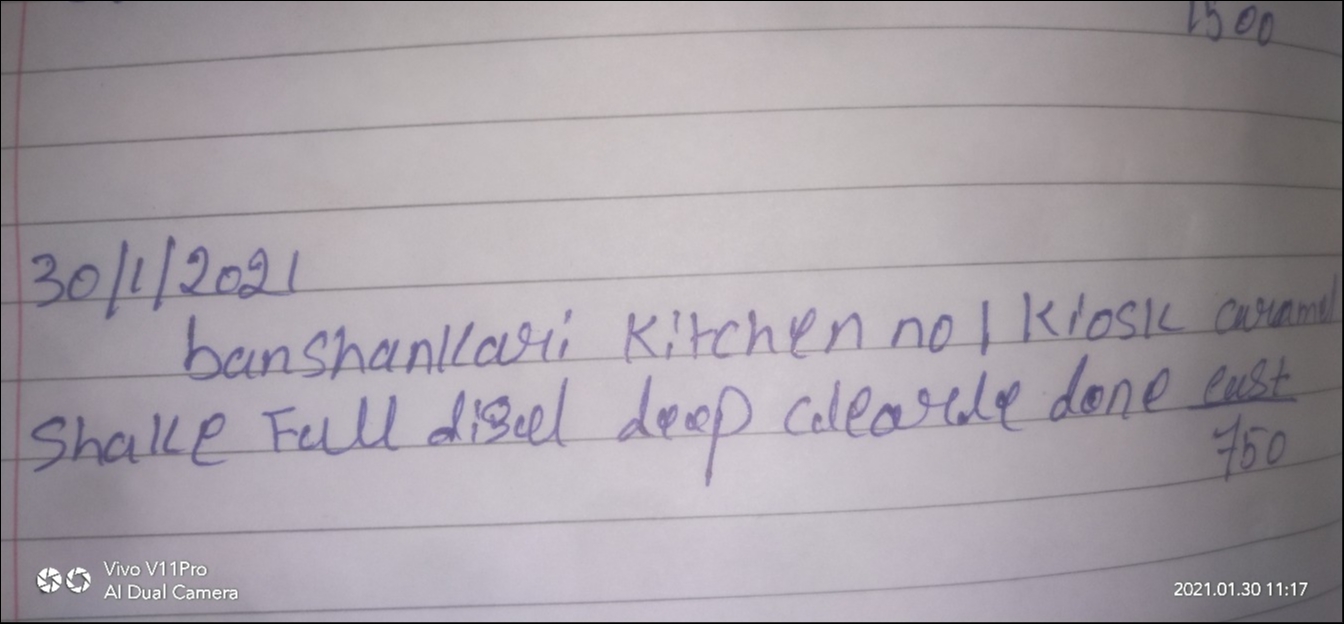 1500
30/1/2021
banshankari Kitchen no 1 Kiosk caramel
Shake Full disel deep cclearcle done cust
750
Vivo V11Pro
AI Dual Camera
2021.01.30 11:17